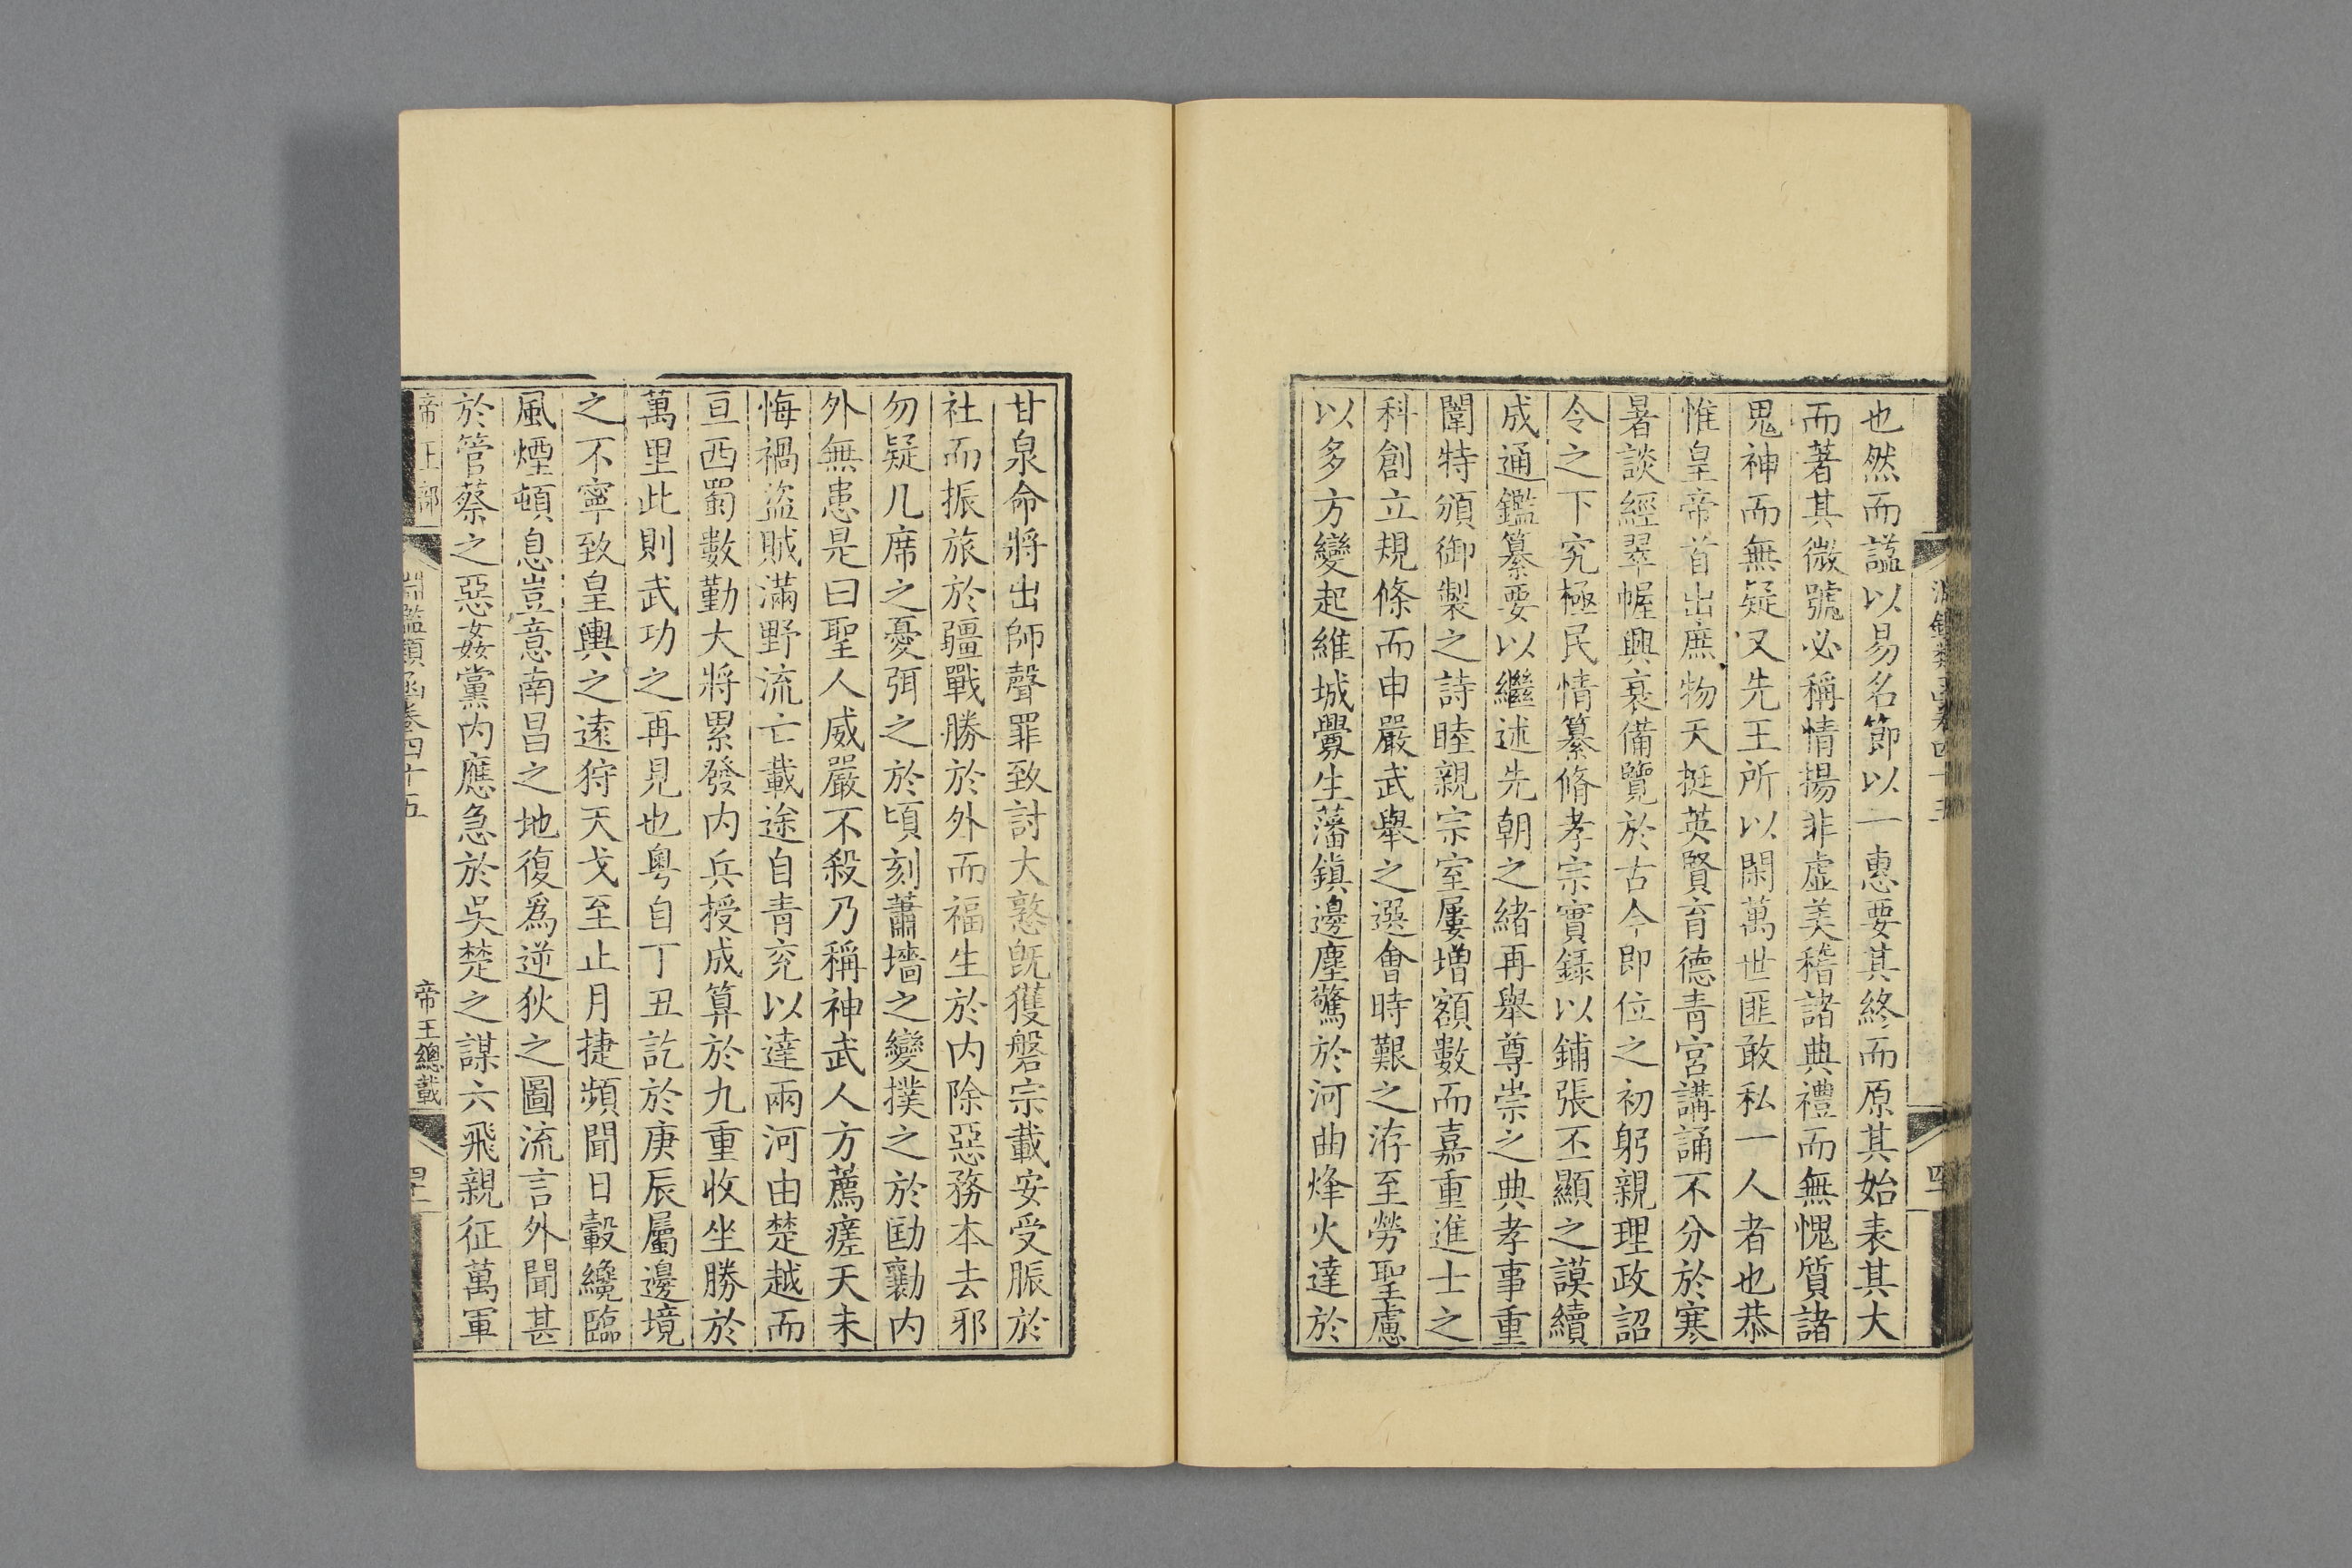 也然而謚以易名節以一惠要其終而原其始表其大
而著其微號必稱情揚非虛美稽諸典禮而無愧質諸
鬼神而無疑又先王所以閑萬世匪敢私一人者也恭
惟皇帝首出庶物天挺英賢育德青宮講誦不分於寒
暑談經翠幄興衰備覽於古今即位之初躬親理政詔
令之下究極民情纂脩孝宗實錄以鋪張丕顯之謨續
成通鑑纂要以繼述先朝之緒再舉尊崇之典孝事重
闈特頒御製之詩睦親宗室屢增額數而嘉重進士之
科創立規條而申嚴武舉之選會時艱之洊至勞聖慮
以多方變起維城釁生藩鎮邊塵驚於河曲烽火達於
甘泉命將出師聲罪致討大憝旣獲磐宗載安受脤於
社而振旅於疆戰勝於外而福生於內除惡務本去邪
勿疑几席之憂弭之於頃刻蕭墻之變撲之於劻勷內
外無患是曰聖人威嚴不殺乃稱神武人方薦瘥天未
悔禍盜賊滿野流亡載途自青兖以達兩河由楚越而
亘西蜀數勤大將累發內兵授成算於九重收坐勝於
萬里此則武功之再見也粤自丁丑訖於庚辰屬邊境
之不寧致皇輿之遠狩天戈至止月捷頻聞日轂纔臨
風煙頓息豈意南昌之地復爲逆狄之圖流言外聞甚
於管蔡之惡姦黨內應急於吳楚之謀六飛親征萬軍
帝王部
淵鑑類函卷四十五
帝王總載